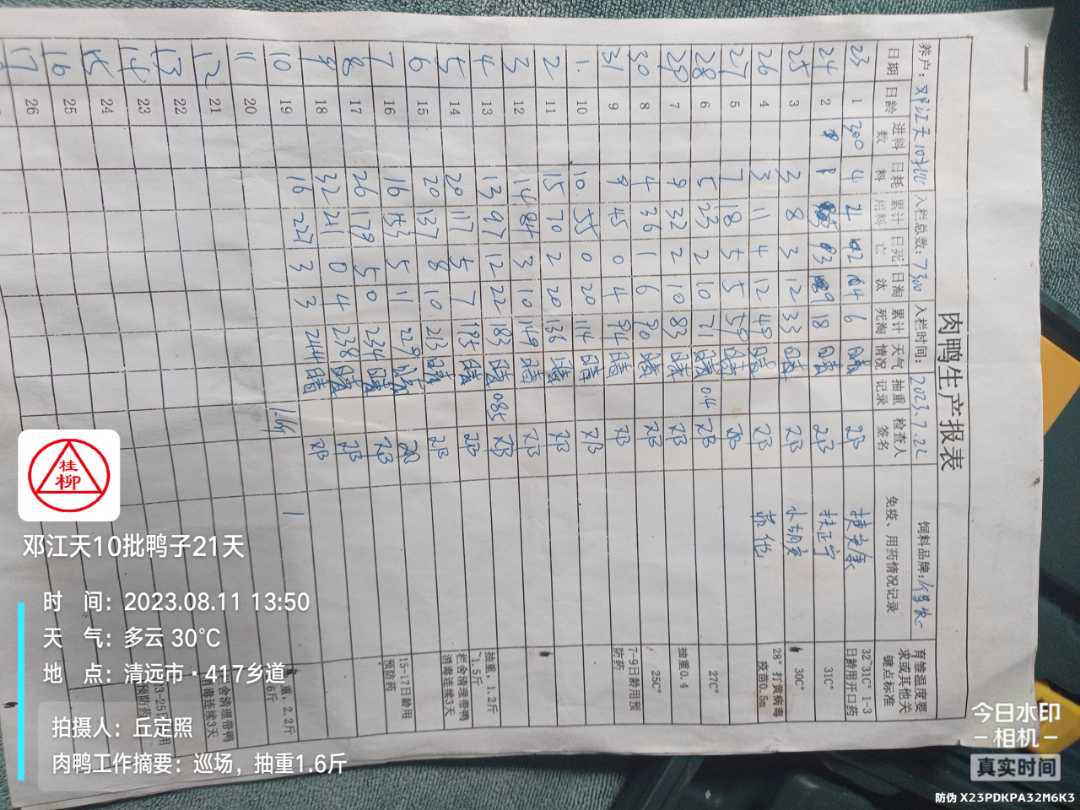 肉鸭生产报表
养户：邓江天10批 入栏总数：7300 入栏时间：2023.7.22 饲料品牌：
日期 日龄 进料数 日耗料 累计用料 日死亡 日淘汰 累计死淘 天气情况 抽重记录 检查人签名 免疫、用药情况记录 育雏温度要求或其他关键点标准
23 1 300 4 2 6 晴 邓 32~31C° 1-3日龄用开口药
24 2 18 晴 邓 扶正宁 31C°
25 3 3 8 3 12 33 晴 邓 30C°
26 4 3 11 4 12 49 晴 邓 28° 打黄病毒疫苗0.5m
27 5 7 18 5 5 59 晴 邓
28 6 5 23 2 10 71 晴 0.4 邓 27C°
29 7 9 32 2 10 83 晴 邓 抽重0.4
30 8 4 36 1 6 90 晴 邓 25C°
31 9 9 45 0 4 94 晴 邓 7-9日龄用预防药
1. 10 10 55 0 20 114 晴 邓
2 11 15 70 2 20 136 晴 邓
3 12 14 84 3 10 149 晴 邓
4 13 13 97 12 22 183 晴 0.85 邓 抽重，1.2斤
5 14 20 117 5 7 195 晴 邓 ~1.5斤
6 15 20 137 8 10 213 晴 邓 栏舍清理带鸭消毒连续3天
7 16 16 153 5 11 229 晴
8 17 26 179 5 0 234 晴 邓 15-17日龄用预防药
9 18 32 211 0 4 238 晴 邓
10 19 16 227 3 3 244 晴 邓
11 20 1.6斤 重，2.2斤
12 21
13 22 舍清理带鸭毒连续3天
14 23
15 24 23-25 用预防药
16 25
17 26
桂柳
邓江天10批鸭子21天
时 间：2023.08.11 13:50
天 气：多云 30℃
地 点：清远市·417乡道
拍摄人：丘定照
肉鸭工作摘要：巡场，抽重1.6斤
今日水印
相机
真实时间
防伪 X23PDKPA32M6K3